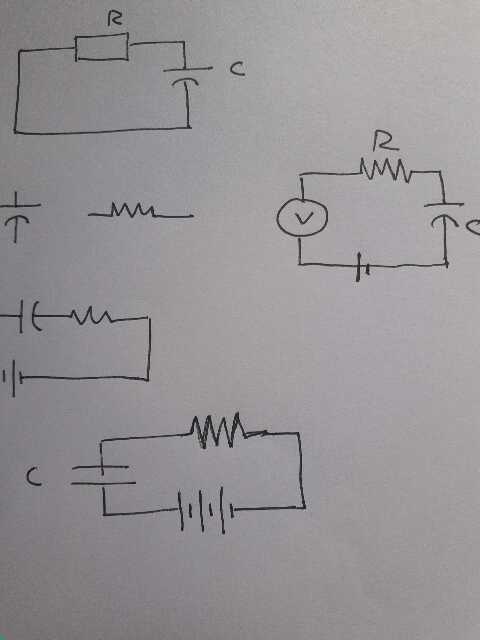 R
C
R
V
C
C